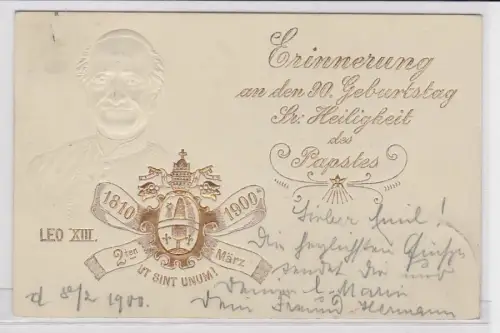 Erinnerung
an den 90. Geburtstag
Sr: Heiligkeit
des
Papstes
1810 1900
LEO XIII.
2ten März
UT SINT UNUM!
Lieber Emil!
Die herzlichsten
sendet Dir und
Deiner l. Marie
Dein Freund Hermann
1900.